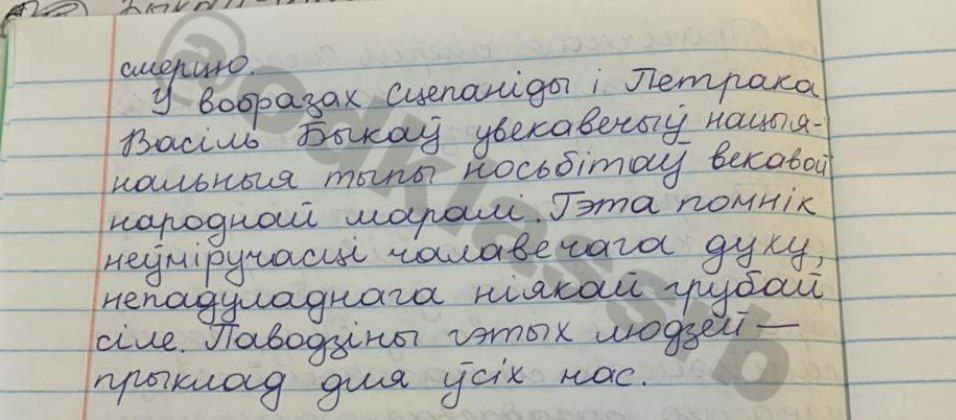 смерцю.
У вобразах Сцепаніды і Петрака
Васіль Быкаў увекавечыў нацыя-
нальныя тыпы носьбітаў векавой
народнай маралі. Гэта помнік
неўміручасці чалавечага духу,
непадуладнага ніякай грубай
сіле. Паводзіны гэтых людзей —
прыклад для ўсіх нас.
@odklassrb